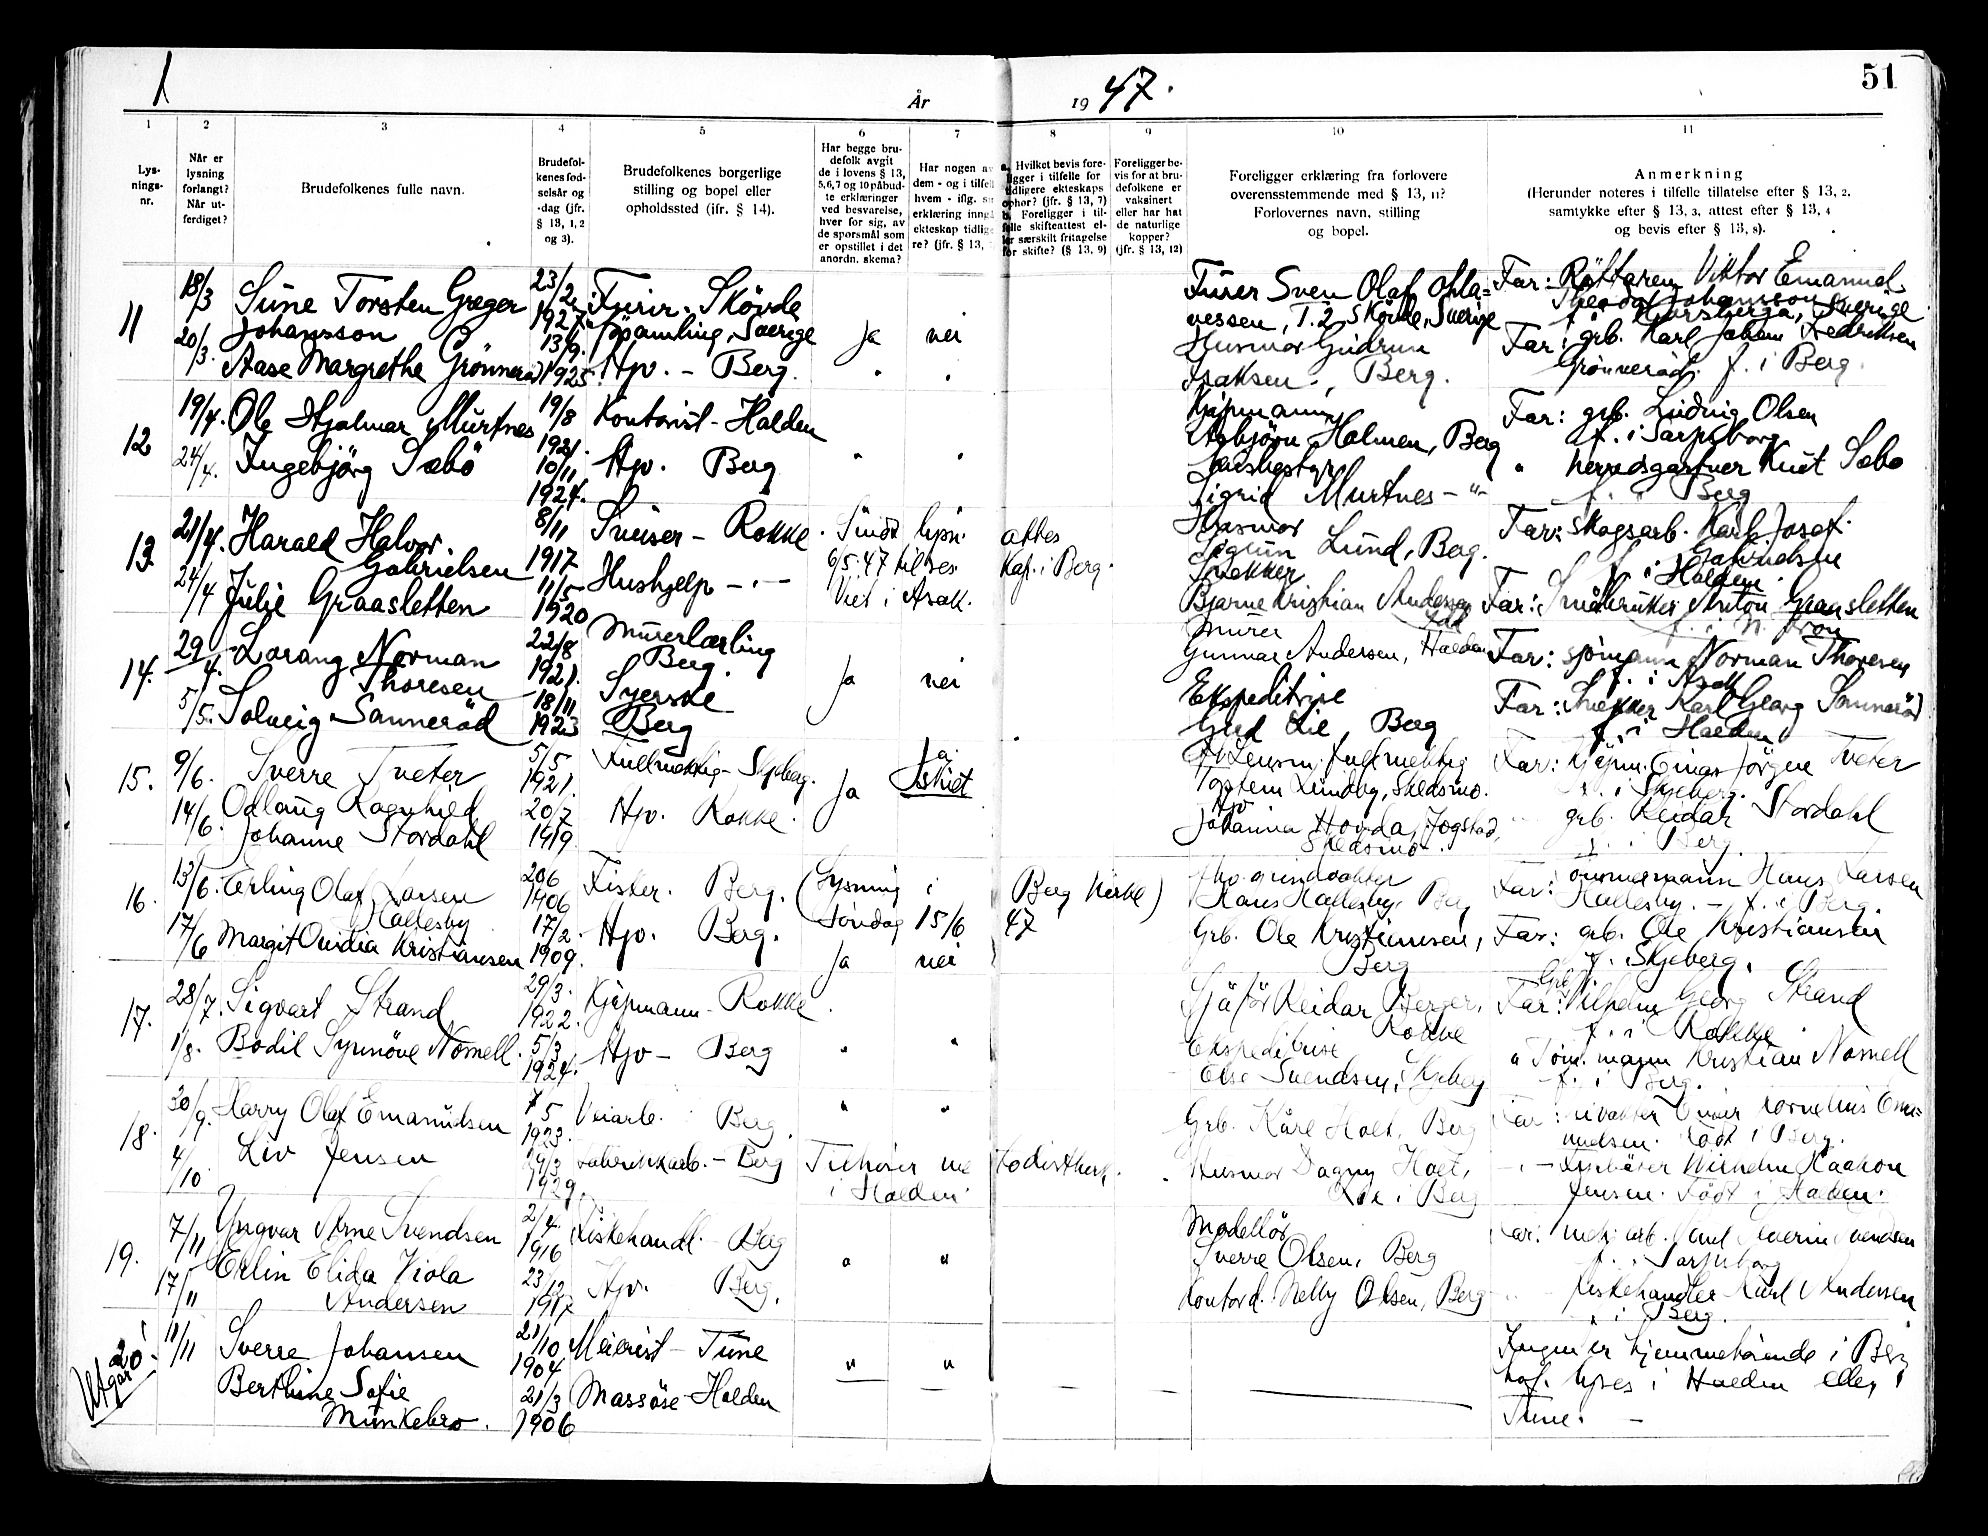 51
År 1947.
1 2 3 4 5 6 7 8 9 10 11
Lys-
nings-
nr.
Når er
lysning
forlangt?
Når ut-
ferdiget?
Brudefolkenes fulle navn.
Brudefol-
kenes fød-
selsår og
-dag (jfr.
§ 13, 1, 2
og 3).
Brudefolkenes borgerlige
stilling og bopel eller
opholdssted (ifr. § 14).
Har begge bru-
defolk avgit
de i lovens § 13,
5,6,7 og 10 påbud-
te erklæringer
ved besvarelse,
hver for sig, av
de spørsmål som
er opstillet i det
anordn. skema?
Har nogen av
dem - og i tilfelle
hvem - iflg.
erklæring inngå
ekteskap tidlige
re? (jfr. § 13,
Hvilket bevis fore-
ligger i tilfelle for
tidligere ekteskaps
ophør? (jfr. § 13, 7)
Foreligger i til-
felle skifteattest el-
ler særskilt fritagelse
for skifte? (§ 13, 9)
Foreligger be-
vis for at bru-
defolkene er
vaksinert
eller har hat
de naturlige
kopper?
(jfr. § 13, 12)
Foreligger erklæring fra forlovere
overensstemmende med § 13, 11?
Forlovernes navn, stilling
og bopel.
Anmerkning
(Herunder noteres i tilfelle tillatelse efter § 13, 2.
samtykke efter § 13, 3, attest efter § 13, 4
og bevis efter § 13, 8).
11
18/3
20/3.
Sune Torsten Greger
Johansson
Aase Margrethe Grönneröd
23/2
1927
13/9.
1925.
Furir. Skövde
Sverige
Hpv. - Berg.
Ja nei
Furer Sven Olaf
T. 2 Skövde, Sverige
Husmor Gudrun
Isaksen, Berg.
Far: Rättaren Viktor Emanuel
Johansson
Sverige
Far: grb. Karl Johan Fredriksen
Grönneröd. f. i Berg.
12
19/4.
24/4.
Ole Hjalmar Murtnes
Ingebjörg Sæbö
19/8
1921.
10/11
1924.
Kontorist - Halden
Hpv. Berg
Kjøpmann
Asbjörn Holmen, Berg
Sigrid Murtnes - "-
Far: grb. Ludvig Olsen
f. i Sarpsborg
" herredsgartner Knut Sæbø
f. i Berg
13
21/4.
24/4
Harald Halvor.
Gabrielsen
Julie Graasletten
8/11
1917
11/5
1920
Snuser - Rokke.
Hushjelp - " -
Sendt lysn. attes
6/5. 47 til res. Kap. i Berg.
Viet i Asak.
Husmor
Sigrun Lund, Berg.
Snekker
Bjarne Kristian Andersen
Idd
Far: Skogsarb. Karl Josef
Gabrielsen
f. i Halden.
Far: Småbruker Anton Graasletten
14.
29/4.
5/5.
Lorang Norman
Thoresen
Solveig Sanneröd
22/8
1921.
18/11
1923
Murerlærling
Berg.
Syerske
Berg
Ja nei
Murer
Gunnar Andersen, Halden
Ekspeditrise
Gerd Lie, Berg
Far: sjömann Norman Thoresen
f. i Asak
Far: Snekker Karl Georg Sanneröd
f. i Halden
15.
9/6.
14/6.
Sverre Tveter
Odlaug Ragnhild
Johanne Stordahl
5/5
1921.
20/7
1919
Fullmektig - Skjeberg.
Hpv. Rokke.
Ja
Ja.
Skilt
Torstein Lundby, Skedsmo.
Hpv
Johanna Hovda, Jogstad,
Skedsmo.
Far: Kjøpm. Einar Jörgen Tveter
f. i Skjeberg.
grb. Reidar Stordahl
f. i Berg
16.
13/6.
17/6
Erling Olaf Larsen
Kallesby
Margit Ovidia Kristiansen
20/6
1906
17/2.
1909.
Fisker. Berg.
Hpv. Berg.
(Lysning i Berg Kirke)
Söndag 15/6 47
Ja nei
Hans Kallesby, Berg
Grb. Ole Kristiansen,
Berg
Far: Tömmermann Hans Larsen
Kallesby. - f. i Berg.
Far: grb. Ole Kristiansen
f. Skjeberg.
17.
28/7.
1/8.
Sigvart Strand
Bodil Synnöve Nornell.
29/3.
1922.
5/3
1924.
Kjøpmann - Rokke.
Hpv - Berg
" "
Sjåför Reidar Berger,
Rokke
Ekspeditrise
Else Svendsen, Skjeberg
Grb.
Far: Vilhelm Georg Strand
f. i Rokke
" Töm. mann Kristian Nornell
f. i Berg.
18.
30/9.
4/10
Harry Olaf Emanuelsen
Liv Jensen
7/5
1923.
19/3
1929.
Veiarb. Berg.
Fabrikkarb. - Berg
" "
Tilhører metodistkirk.
i Halden.
Grb. Kåre Holt, Berg
Husmor Dagny Holt,
Lie i Berg
Kornelius Ema-
nuelsen. Födt i Berg.
- " - Wilhelm Haakon
Jensen. Födt i Halden.
19.
7/11
17/11
Yngvar Arne Svendsen
Erlin Elida Viola
Andersen
2/4.
1916
23/12
1917
Fiskehandl. - Berg
Hpv. Berg.
" "
Modellör
Sverre Olsen, Berg
Kontord. Nelly Olsen, Berg
Far: Severin Svendsen
f. i Sarpsborg
Fiskehandler Karl Andersen
f. i Berg.
20.
Utgår!
11/11
Sverre Johansen
Berthine Sofie
Munkebro.
21/10
1904
21/3
1906
Meierist - Tune
Massöse Halden
" "
Ingen er hjemmehörende i Berg
lyses i Halden eller
Tune. -